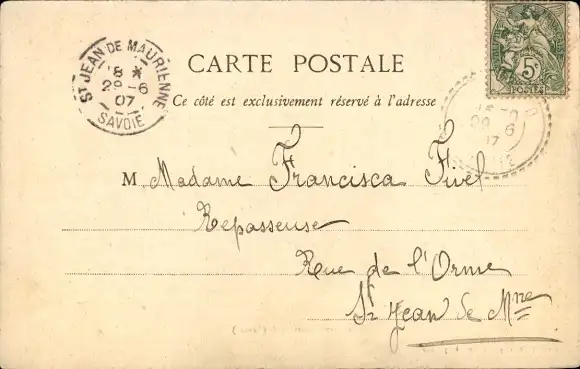 ST JEAN DE MAURIENNE
8 *
29 -6
07
SAVOIE
CARTE POSTALE
Ce côté est exclusivement réservé à l'adresse
5c
POSTES
M. Madame Francisca Fivel
Repasseuse
Rue de l'Orme
St Jean de Mne